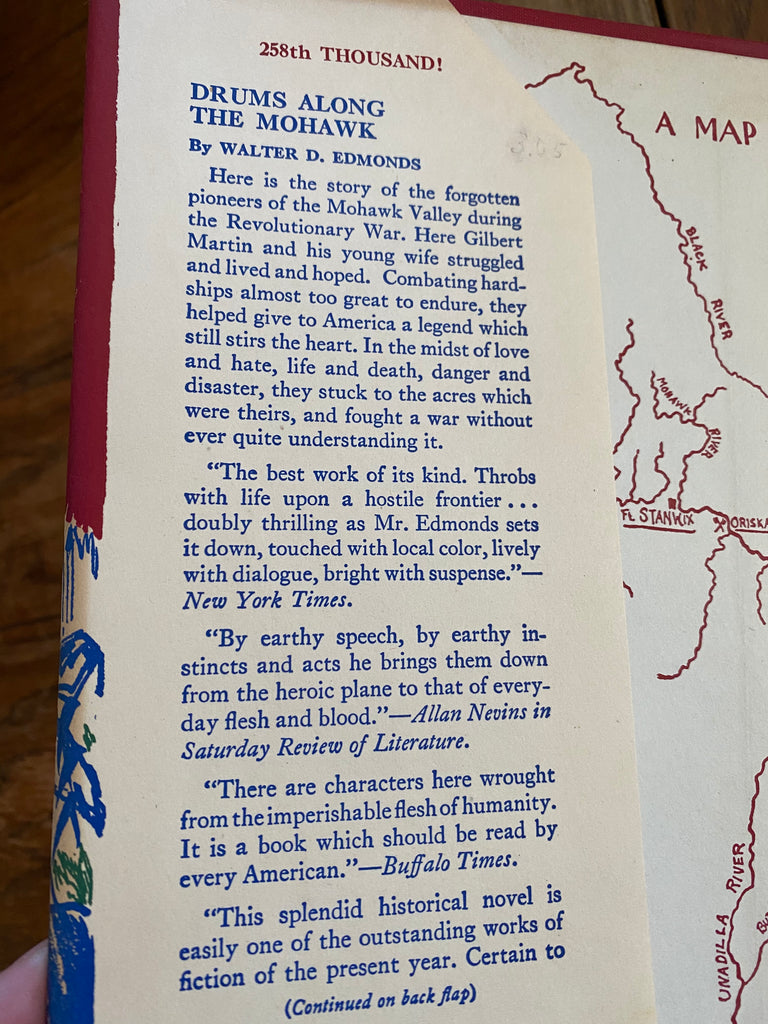 258th THOUSAND!
DRUMS ALONG
THE MOHAWK
By WALTER D. EDMONDS
Here is the story of the forgotten
pioneers of the Mohawk Valley during
the Revolutionary War. Here Gilbert
Martin and his young wife struggled
and lived and hoped. Combating hard-
ships almost too great to endure, they
helped give to America a legend which
still stirs the heart. In the midst of love
and hate, life and death, danger and
disaster, they stuck to the acres which
were theirs, and fought a war without
ever quite understanding it.
“The best work of its kind. Throbs
with life upon a hostile frontier...
doubly thrilling as Mr. Edmonds sets
it down, touched with local color, lively
with dialogue, bright with suspense.”—
New York Times.
“By earthy speech, by earthy in-
stincts and acts he brings them down
from the heroic plane to that of every-
day flesh and blood.”—Allan Nevins in
Saturday Review of Literature.
“There are characters here wrought
from the imperishable flesh of humanity.
It is a book which should be read by
every American.”—Buffalo Times.
“This splendid historical novel is
easily one of the outstanding works of
fiction of the present year. Certain to
(Continued on back flap)
A MAP
BLACK
RIVER
MOHAWK
RIVER
Ft. STANWIX
ORISKA
UNADILLA RIVER